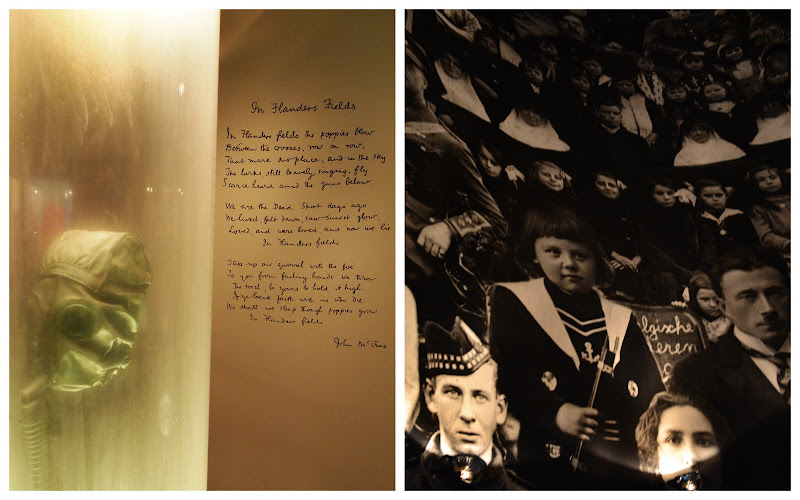 In Flanders Fields
In Flanders fields the poppies blow
Between the crosses, row on row,
That mark our place, and in the sky
The larks, still bravely singing, fly
Scarce heard amid the guns below
We are the Dead. Short days ago
We lived, felt dawn, saw sunset glow,
Loved and were loved and now we lie
In Flanders fields
Take up our quarrel with the foe
To you from failing hands we throw
The torch, be yours to hold it high.
If ye break faith with us who die
We shall not sleep though poppies grow
In Flanders fields
John McCrae
lgische
eren